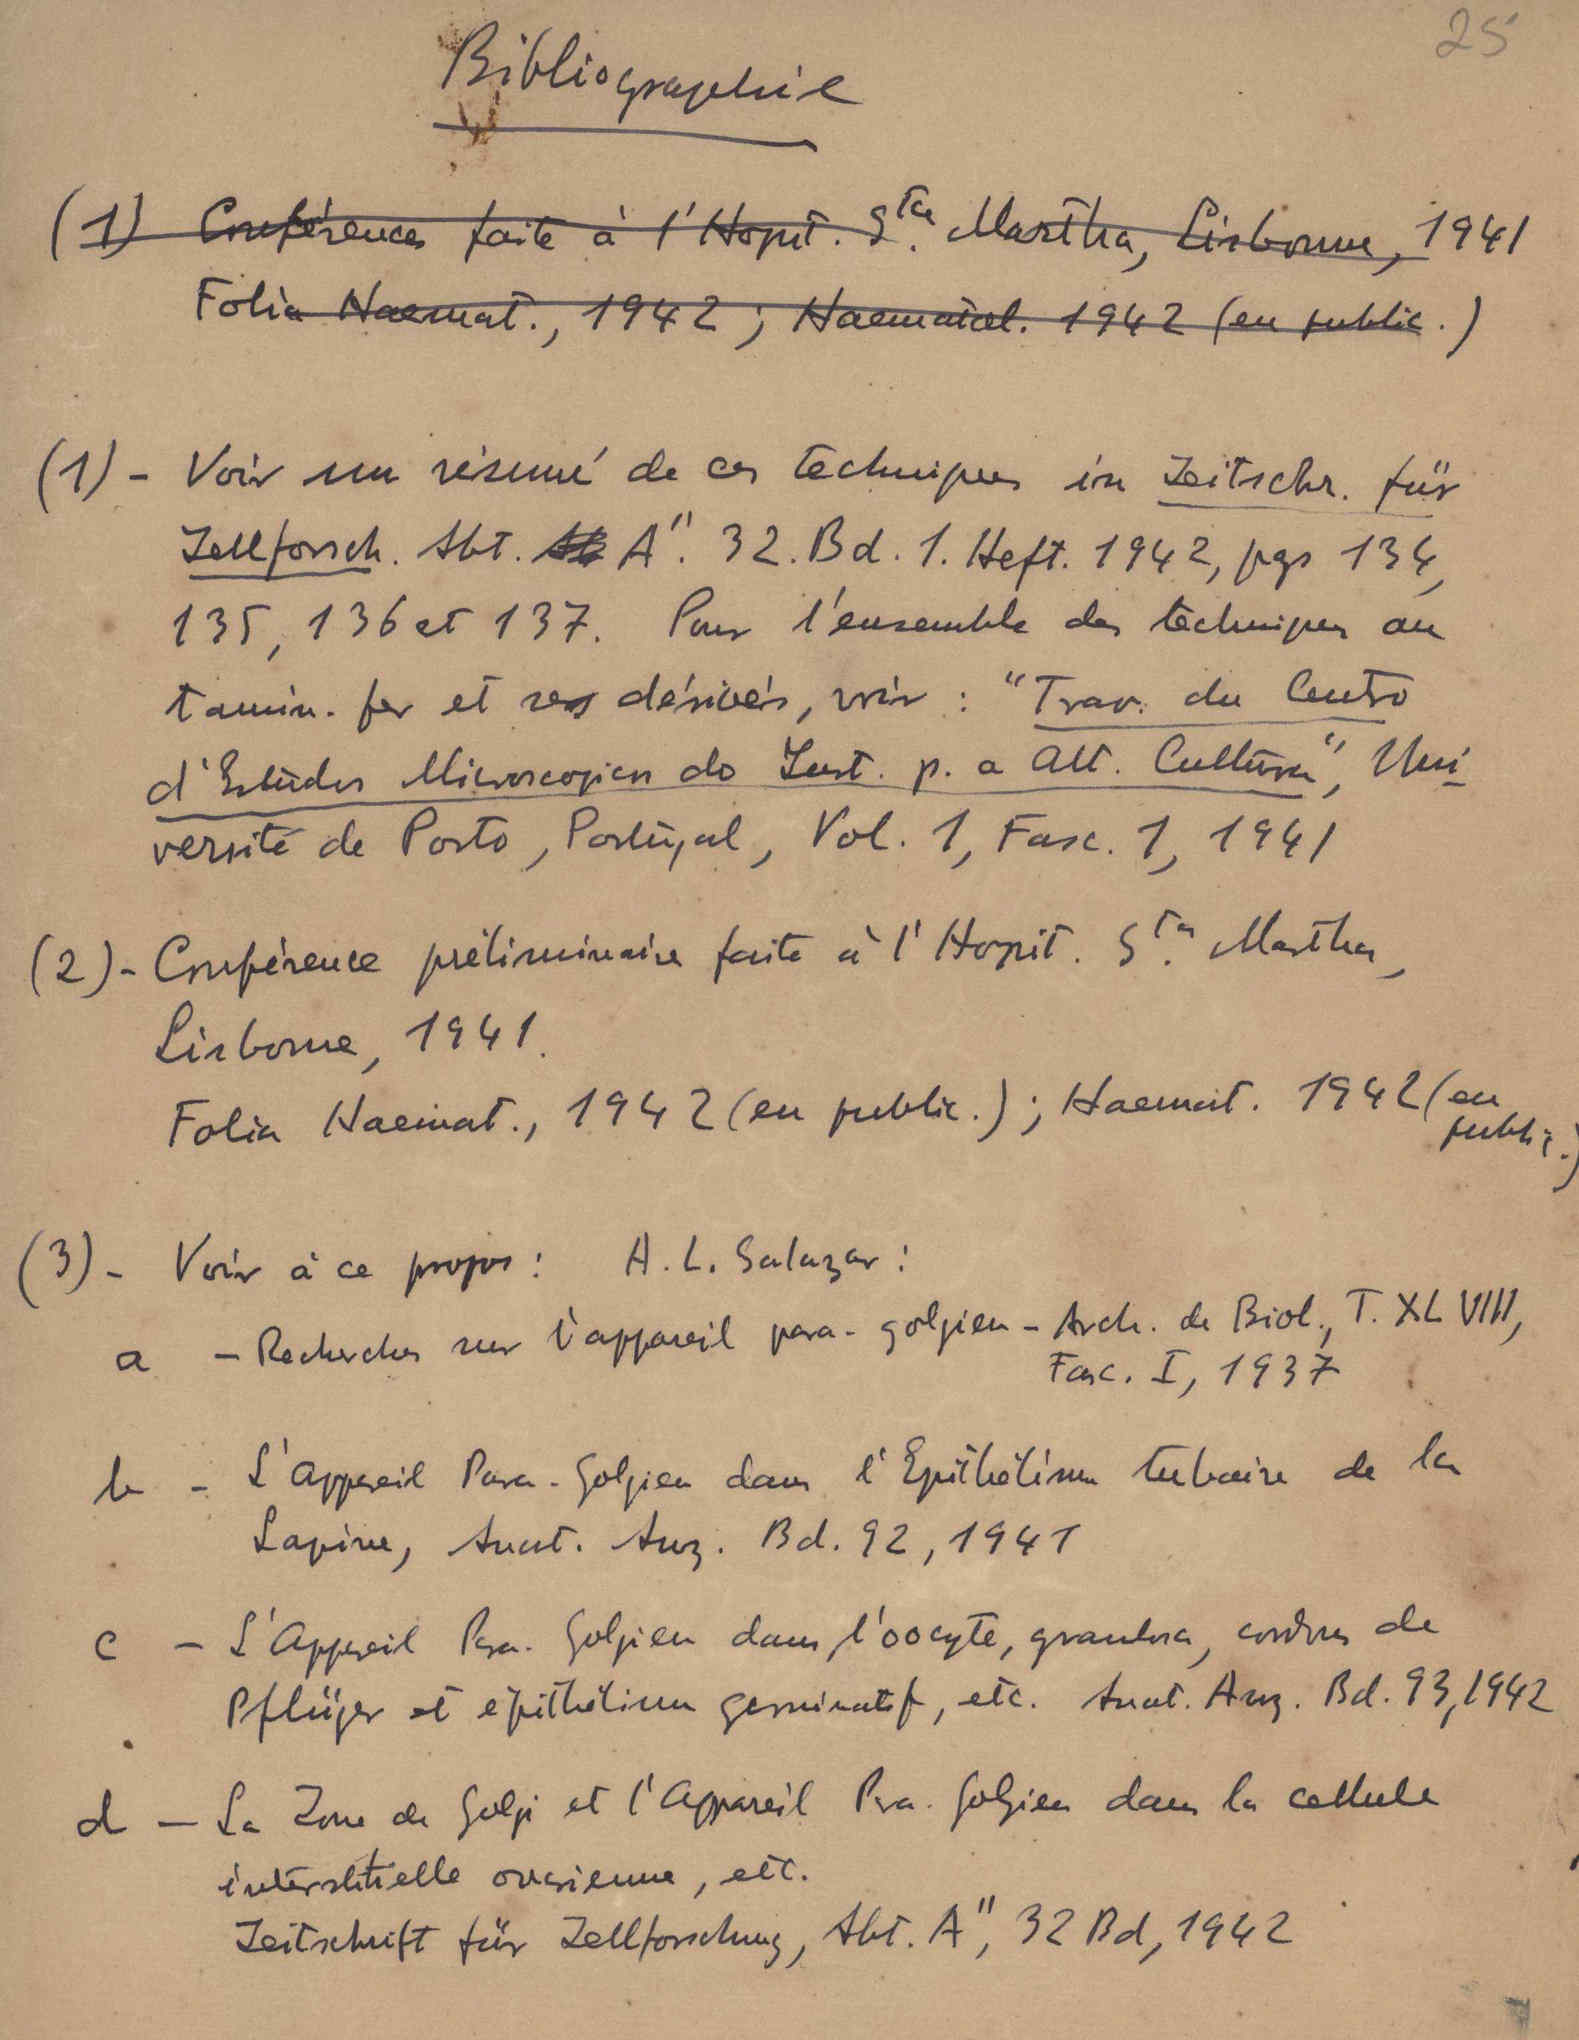 25
Bibliographie
(1) Conférences faite à l'Hopit. Sta. Martha, Lisbonne, 1941
Folia Haemat., 1942 ; Haematol. 1942 (en public.)
(1) - Voir un résumé de ces techniques in Zeitschr. für
Zellforsch. Abt. A". 32. Bd. 1. Heft. 1942, pgs 134,
135, 136 et 137. Pour l'ensemble des techniques au
tannin. fer et ses dérivés, voir : "Trav. du Centro
d'Estudos Microscopicos do Inst. p. a Alt. Cultura", Uni
versité de Porto, Portugal, Vol. 1, Fasc. 1, 1941
(2) - Conférence préliminaire faite à l'Hopit. Sta. Martha,
Lisbonne, 1941.
Folia Haemat., 1942 (en public.) ; Haemat. 1942 (en
public.)
(3) - Voir à ce propos : A. L. Salazar :
a - Recherches sur l'appareil para-golgien - Arch. de Biol., T. XLVIII,
Fasc. I, 1937
b - L'Appareil Para-Golgien dans l'Epithélium tubaire de la
Lapine, Anat. Anz. Bd. 92, 1941
c - L'Appareil Para-Golgien dans l'oocyte, granulosa, cordons de
Pflüger et épithélium germinatif, etc. Anat. Anz. Bd. 93, 1942
d - La Zone de Golgi et l'Appareil Para-Golgien dans la cellule
interstitielle ovarienne, etc.
Zeitschrift für Zellforschung, Abt. A", 32 Bd, 1942